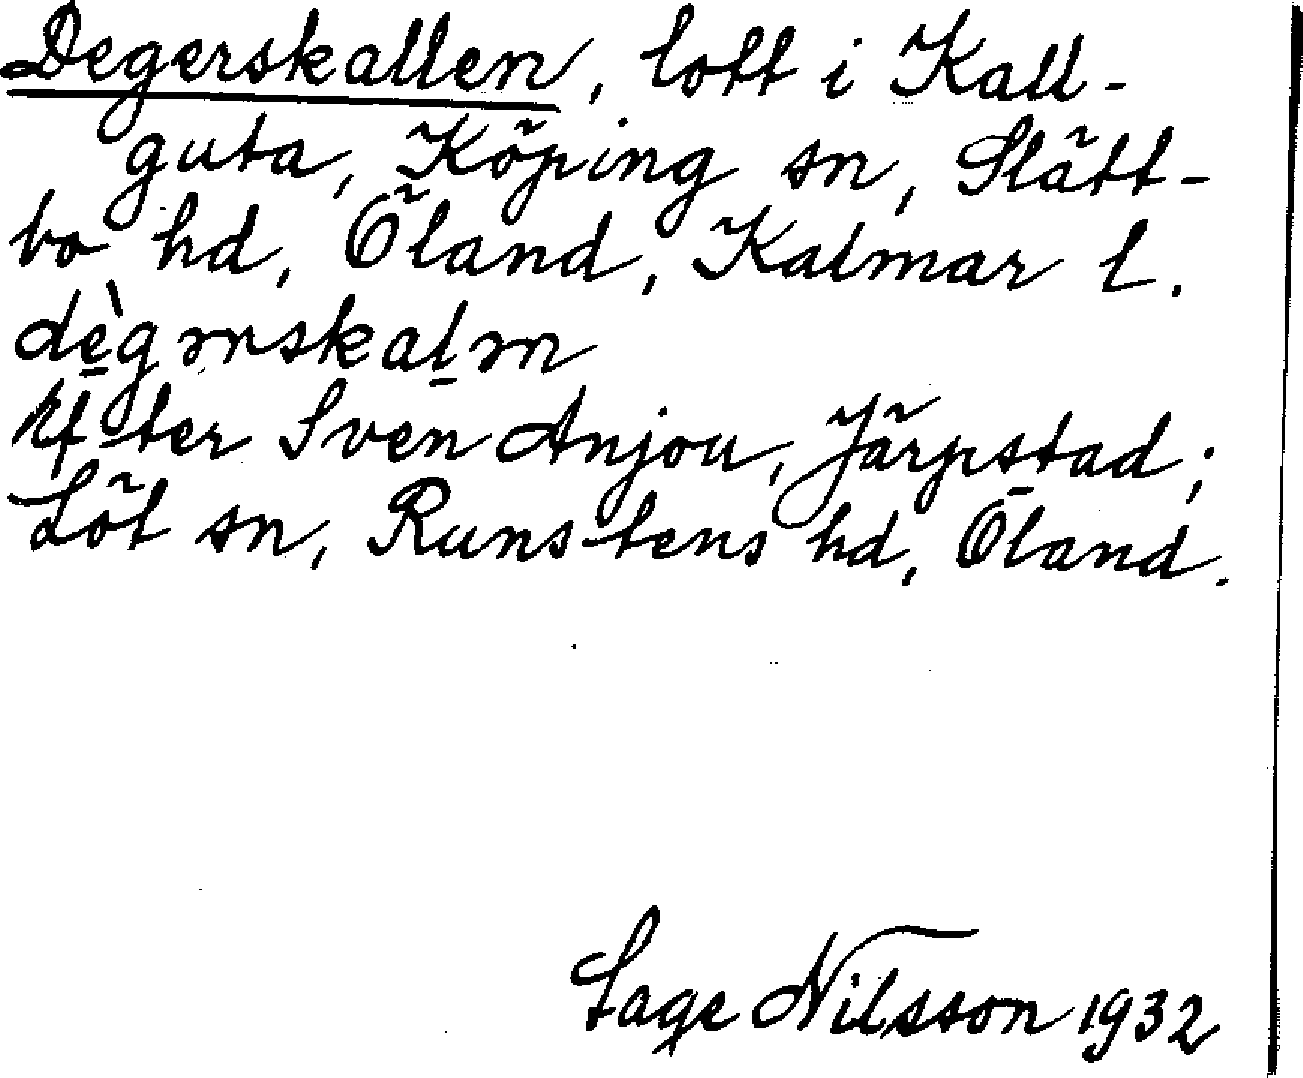 Degerskallen, lott i Kall-
guta, Köping sn, Slätt-
bo hd, Öland, Kalmar l.
Efter Sven Anjou, Järpstad;
Löt sn, Runstens hd, Öland.
Sage Nilsson 1932